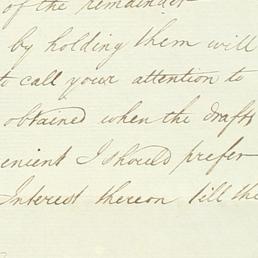 of the remainder
by holding them will
to call your attention to
obtained when the drafts
enient I should prefer
Interest thereon till the